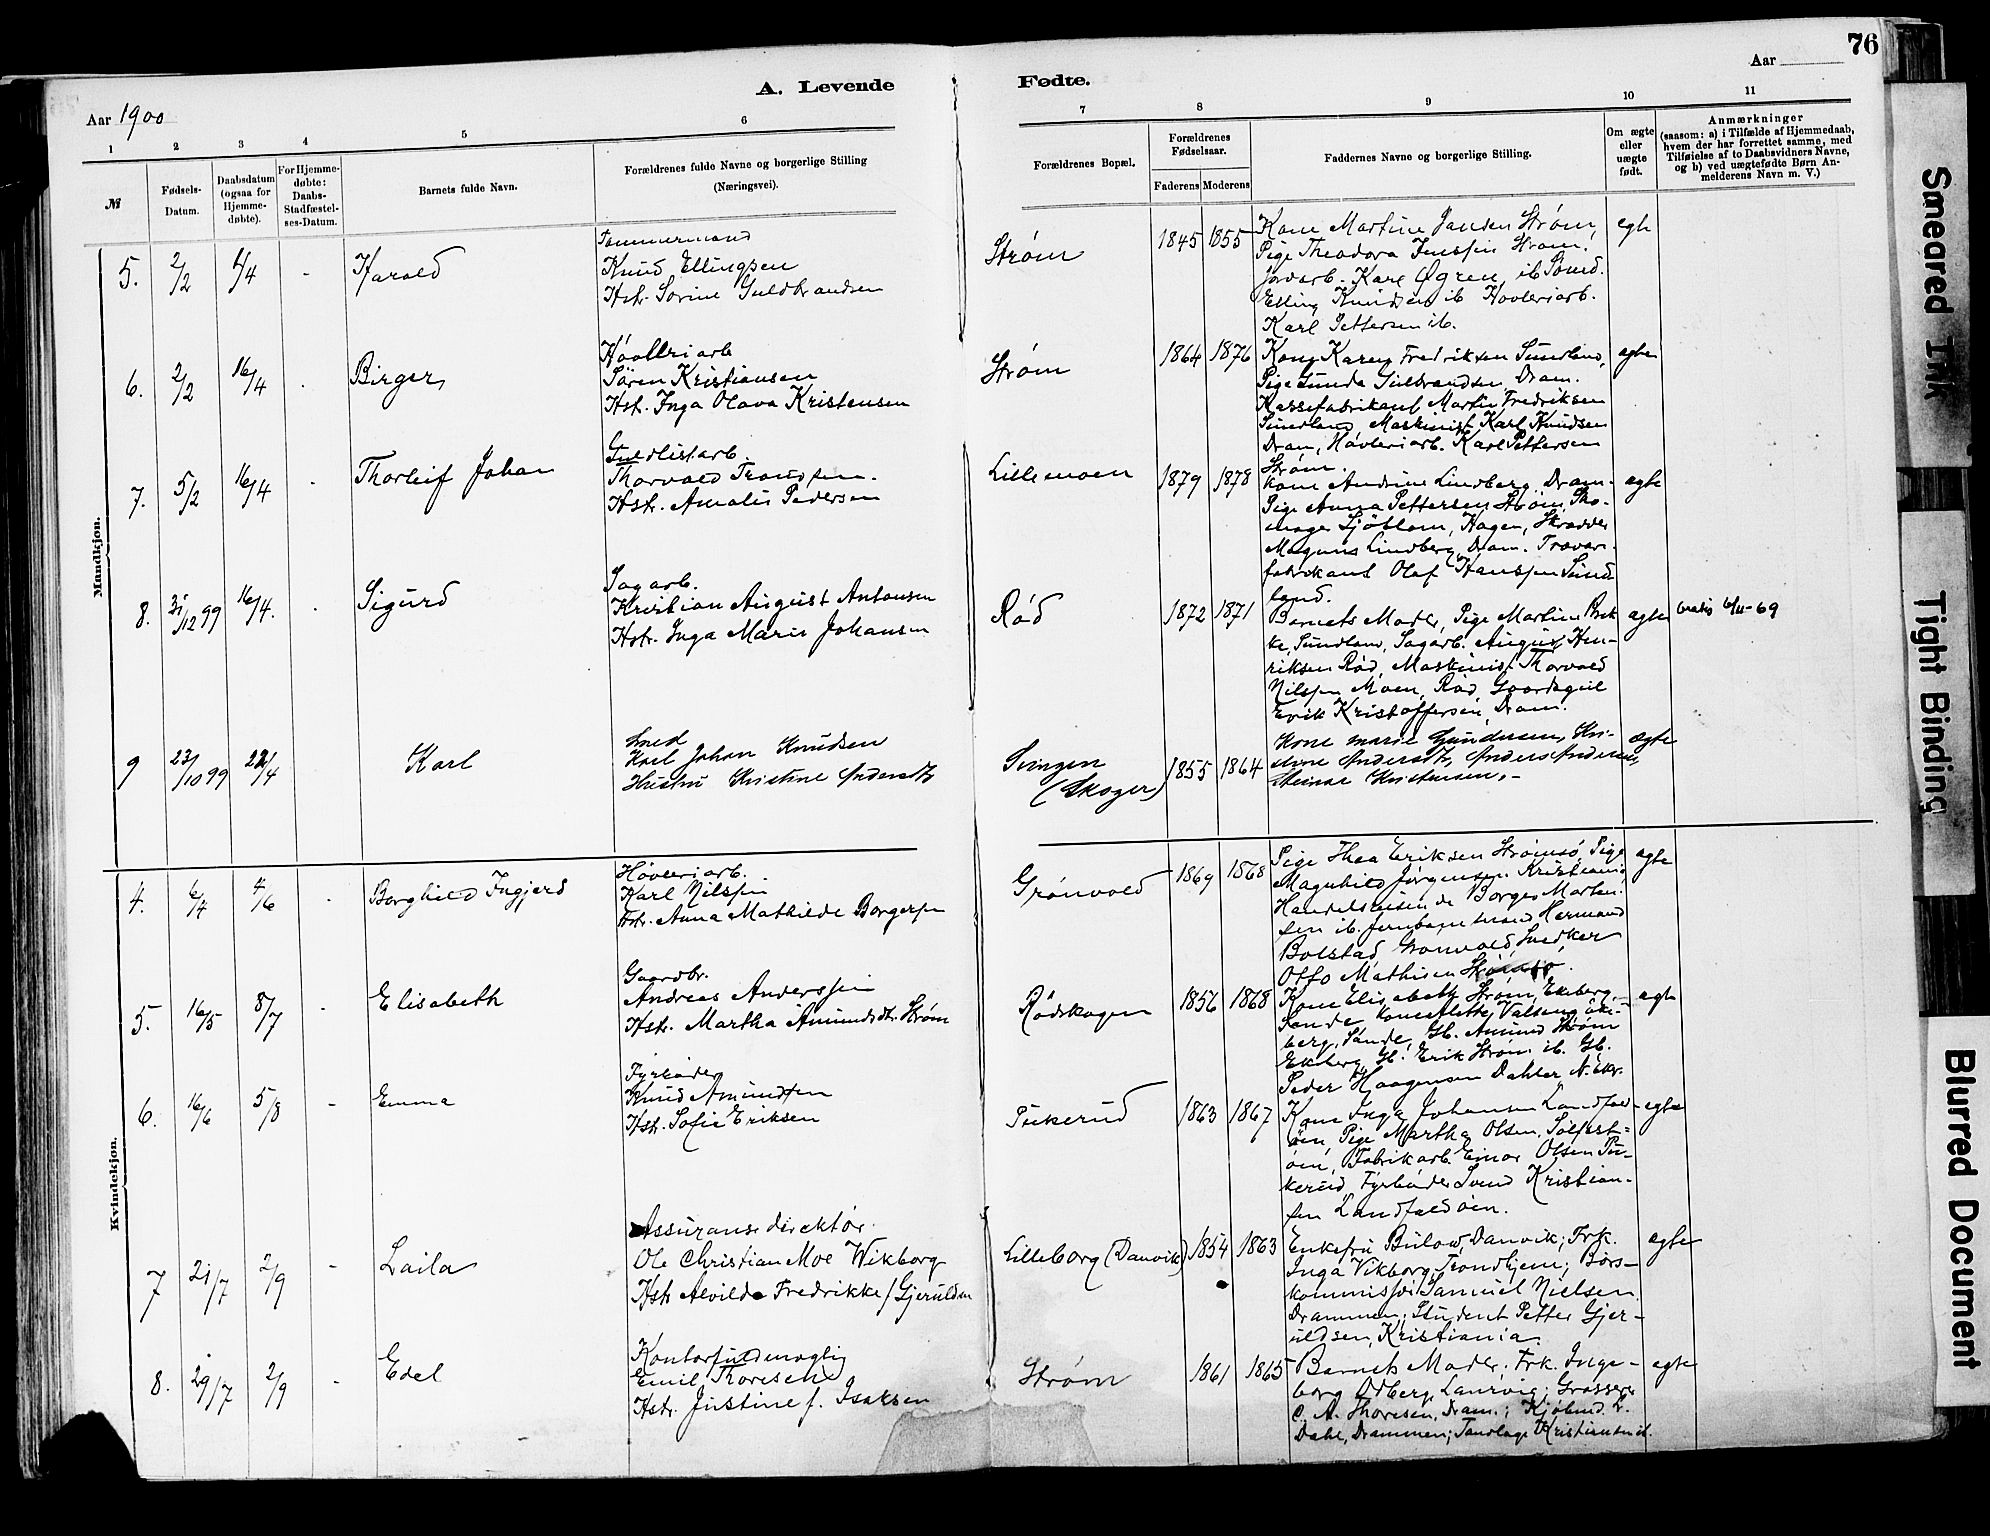 76
Aar
A. Levende Fødte.
Aar 1900
1 2 3 4 5 6 7 8 9 10 11
№
Fødsels-
Datum.
Daabsdatum
(ogsaa for
Hjemme-
døbte).
For Hjemme-
døbte:
Daabs-
Stadfæstel-
ses-Datum.
Barnets fulde Navn.
Forældrenes fulde Navne og borgerlige Stilling
(Næringsvei).
Forældrenes Bopæl.
Forældrenes
Fødselsaar.
Faderens Moderens
Faddernes Navne og borgerlige Stilling.
Om ægte
eller
uægte
født.
Anmærkninger
(saasom: a) i Tilfælde af Hjemmedaab,
hvem der har forrettet samme, med
Tilføielse af to Daabsvidners Navne,
og b) ved uægtefødte Børn An-
melderens Navn m. V.)
Mandkjøn.
5. 2/2 - Harald
Tømmermand
Knud Ellingsen
Hstr. Sorine Guldbrandsen
Strøm 1845 1855
Kone Martine Jansen Strøm,
Pige Theodora Jenssen Strøm.
Jovarb. Karl Øgren, ib Smed.
Elling Knudsen ib Høvleriarb.
Karl Pettersen ib.
egte
6. 2/2 16/4 Birger
Høvleriarb
Søren Kristiansen
Hst. Inga Olava Kristensen
Strøm 1864 1876
Kone Karen Fredriksen Sundland,
Pige Gunda Gulbrandsen Dram.
Kassefabrikant Martin Fredriksen
Sundland, Maskinist Karl Knudsen
Dram, Høvleriarb. Karl Pettersen
Strøm.
ægte
7. 5/2 16/4 Thorleif Johan
Guldlistarb.
Thorvald Trondsen.
Hstr. Amalie Pedersen
Lillemoen 1879 1878
Kone Andrine Lindberg Dram.
Pige Anna Pettersen Strøm, Sko-
mager Sjöblom, Hagen, Skrædder
Magnus Lindberg, Dram. Trævare-
fabrikant Olaf Hanssen Sund
land.
ægte
8. 31/12 99 16/4. Sigurd
Sagarb.
Kristian August Antonsen
Hstr. Inga Marie Johansen
Rød 1872 1871
Barnets Moder, Pige Martine Brek
ke, Sundland, Sagarb. August Hen-
riksen Rød, Maskinist Thorvald
Nilssen Moen, Rød, Gaardsgut
Erik Kristoffersen, Dram.
ægte
9 23/10 99 22/4 Karl
Smed
Karl Johan Knudsen
Hustru Kristine Andersdtr
Svingen
(Skoger) 1855 1864
Kone Marie Gundersen, Kri-
stine Andersdtr, Anders Andersen,
Steinar Kristensen,-
ægte
Kvindekjøn.
4. 6/4 4/6 - Borghild Ingjerd
Høvleriarb.
Karl Nilssen
Hstr. Anna Mathilde Borgersen
Grønvold 1869 1868
Pige Thea Eriksen Strømsö, Pige
Magnhild Jørgensen Kristiania,
Handelsreisende Borge Marten-
sen ib. Jernbanemand Herman
Bolstad, Grønvold Snedker
Otto Mathisen Strømsö.
ægte
5. 16/5 8/7 - Elisabeth
Gaardbr.
Andreas Anderssen
Hstr. Martha Amundsdtr. Strøm
Rødskogen 1856 1868
Kone Elisabeth Strøm, Ekeberg,
Sande, Kone Alette Valseng Eke-
berg, Sande, Gb. Amund Strøm
Ekeberg, Gb. Erik Strøm ib. Gb.
Peder Haagensen Dahler N. Eker.
- egte
6. 16/6 5/8 - Emma
Fyrbøder
Knud Amundsen
Hstr. Sofie Eriksen
Pukerud 1863 1867
Kone Inga Johansen Landfald-
øen, Pige Martha Olsen, Sølfast-
øen, Fabrikarb. Einar Olsen Pu-
kerud, Fyrbøder Svend Kristian-
sen Landfaldøen.
- egte
7 21/7 2/9 - Laila
Assuransedirektør
Ole Christian Moe Wikborg
Hstr Alvilde Fredrikke f Gjeruldsen
Lilleborg (Danvik) 1854 1863
Enkefru Bülow, Danvik; Frk.
Inga Vikborg, Trondhjem; Børs-
kommissær Samuel Nielsen
Drammen; Student Petter Gjer-
uldsen, Kristiania
ægte
8. 29/7 2/9 - Edel
Kontorfuldmægtig
Emil Thoresen
Hstr. Justine f. Isaksen
Strøm 1861 1865
Barnets Moder; Frk. Inge-
borg Odberg, Laurvig; Grosserer
C. A. Thoresen, Dram.; Kjøbmd. L.
Dahl, Drammen; Tandlæge Kristiansen ib.
egte
Smeared Ink
Tight Binding
Blurred Document